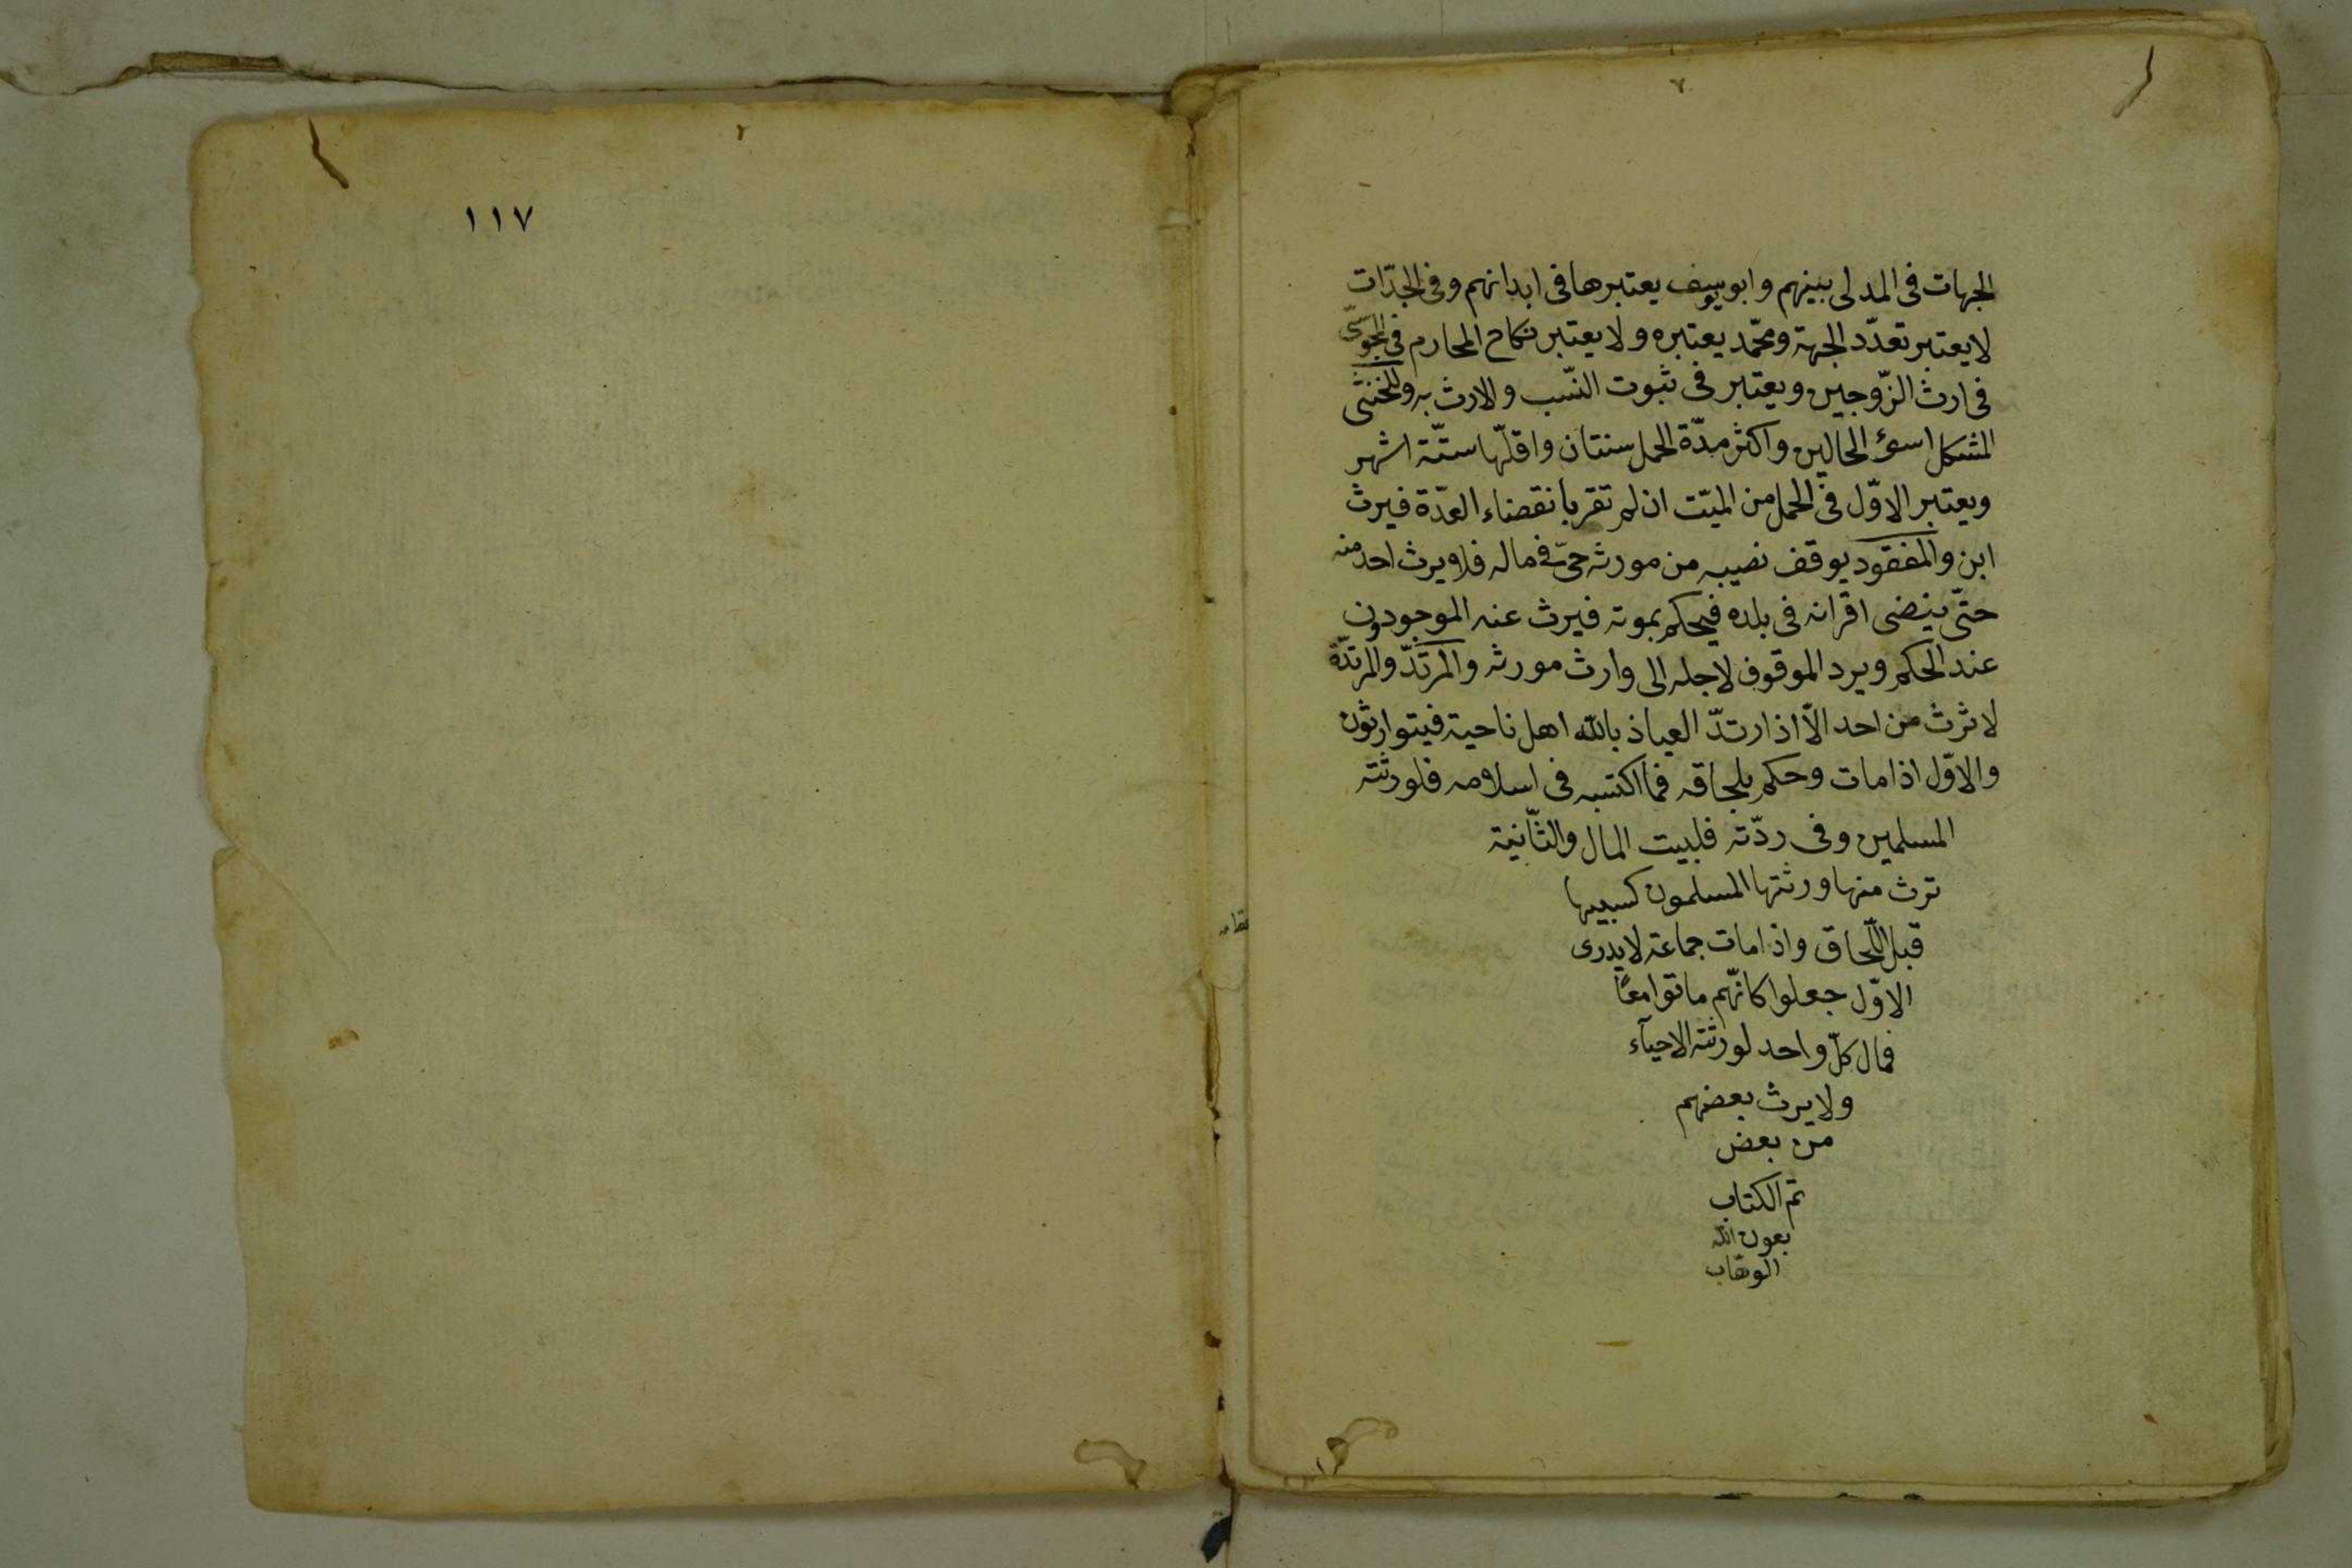 الجهات فى المدلى بينهم وابو يوسف يعتبرها فى ابدانهم وفى الجدّات
لا يعتبر تعدّد الجهة ومحمّد يعتبره ولا يعتبر نكاح المحارم فى المجوسىّ
فى ارث الزّوجين ويعتبر فى ثبوت النّسب والارث به وللخنثى
المشكل اسوء الحالين واكثر مدّة الحمل سنتان واقلّها ستّة اشهر
ويعتبر الاوّل فى الحمل من الميّت ان لم تقر بانقضاء العدّة فيرث
ابن والمفقود يوقف نصيبه من مورثه حىّ فى ماله فلا يرث احد منه
حتّى ينضى اقرانه فى بلده فيحكم بموته فيرث عنه الموجودون
عند الحكم ويرد الموقوف لاجله الى وارث مورثه والمرتدّ والمرتدّة
لا ثرث من احد الاّ اذا ارتدّ العياذ بالله اهل ناحية فيتوارثون
والاوّل اذا مات وحكم بلحاقه فما اكتسبه فى اسلامه فلورثته
المسلمين وفى ردّته فلبيت المال والثّانية
ترث منها ورثتها المسلمون كسبيها
قبل اللّحاق واذا مات جماعة لا يدرى
الاوّل جعلوا كانّهم ماتوا معًا
فمال كلّ واحد لورثته الاحيآء
ولا يرث بعضهم
من بعض
تم الكتاب
بعون الله
الوهّاب
١١٧